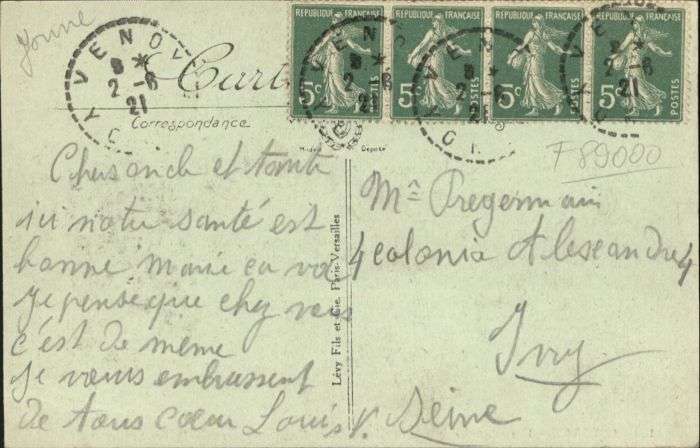 Yonne
VENOY
2-6
21
RÉPUBLIQUE FRANÇAISE
5c
POSTES
RÉPUBLIQUE FRANÇAISE
5c
POSTES
RÉPUBLIQUE FRANÇAISE
5c
POSTES
RÉPUBLIQUE FRANÇAISE
5c
POSTES
Correspondance
F89000
Cher oncle et tante
ici notre santé est
bonne Marie ça va
Je pense que chez vous
c'est de même
Je vous embrassent
de tous cœur Louis
Lévy Fils et Cie, Paris-Versailles
Mr Pregermain
4 colonia Alexandre 4
Ivry
Seine